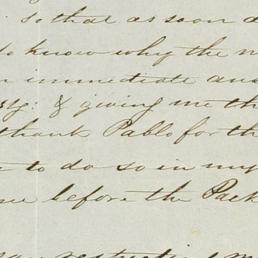 So that as soon a
to know why the m
n immediate ans
sty: & giving me th
thank Pablo for th
to do so in my
me before the Pack